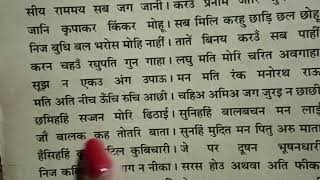 सीय राममय सब जग जानी। करउँ प्रनाम जोरि जुग
जानि कृपाकर किंकर मोहू। सब मिलि करहु छाड़ि छल छोहू
निज बुधि बल भरोस मोहि नाहीं। तातें बिनय करउँ सब पाहीं
करन चहउँ रघुपति गुन गाहा। लघु मति मोरि चरित अवगाहा
सूझ न एकउ अंग उपाऊ। मन मति रंक मनोरथ राऊ
मति अति नीच ऊँचि रुचि आछी। चहिअ अमिअ जग जुरइ न छाछी
छमिहहिं सज्जन मोरि ढिठाई। सुनिहहिं बालबचन मन लाई
जौं बालक कह तोतरि बाता। सुनहिं मुदित मन पितु अरु माता
हँसिहहिं कुबिचारी। जे पर दूषन भूषनधारी
निज लाग न नीका। सरस होउ अथवा अति फीका